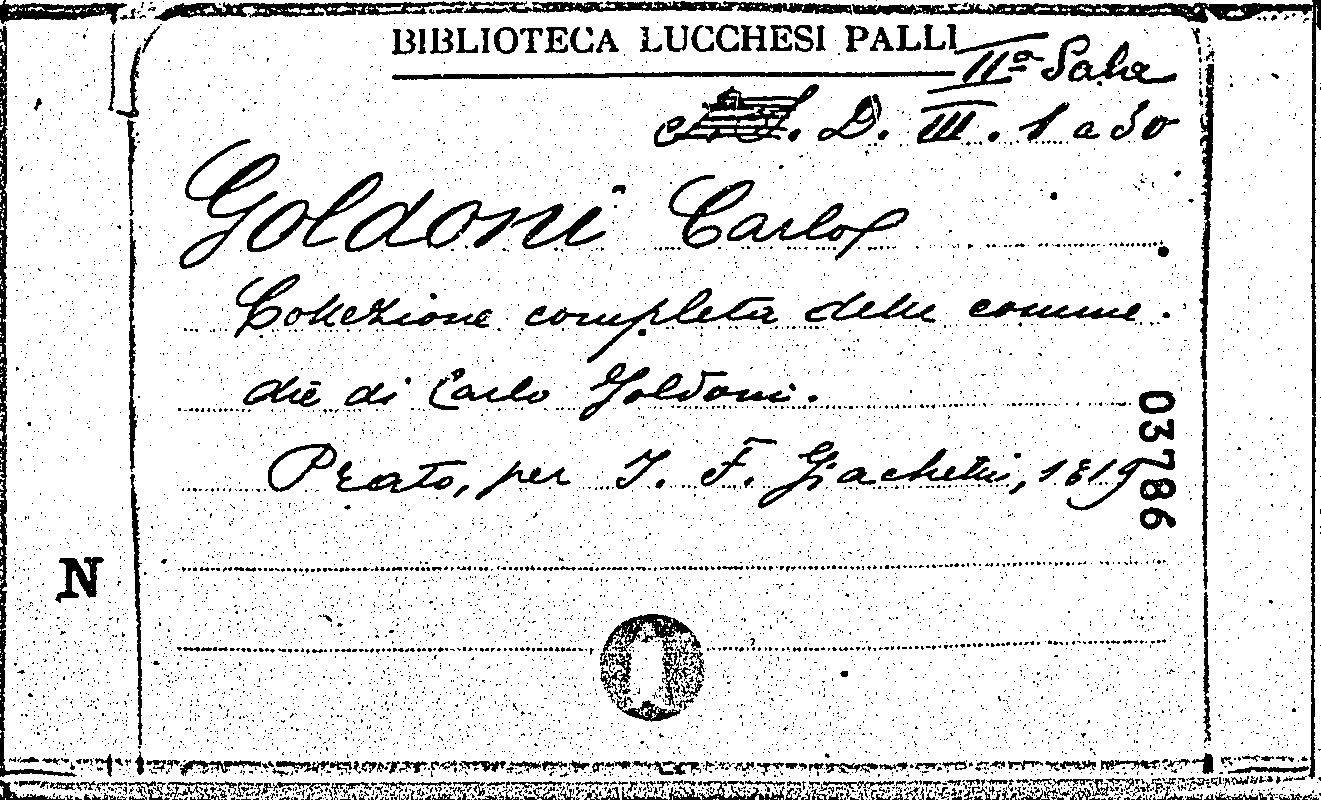 BIBLIOTECA LUCCHESI PALLI
IIª Sala
D. III. 1 a 30
Goldoni Carlo
Collezione completa delle comme.
die di Carlo Goldoni.
Prato, per I. F. Giachetti, 1819
03786
N